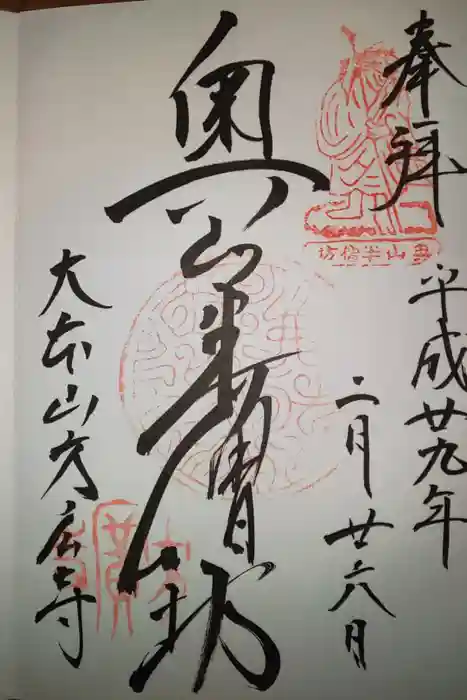 奉拝
平成廿九年
二月廿六日
奥山半僧坊
奥山半僧坊
大本山方広寺